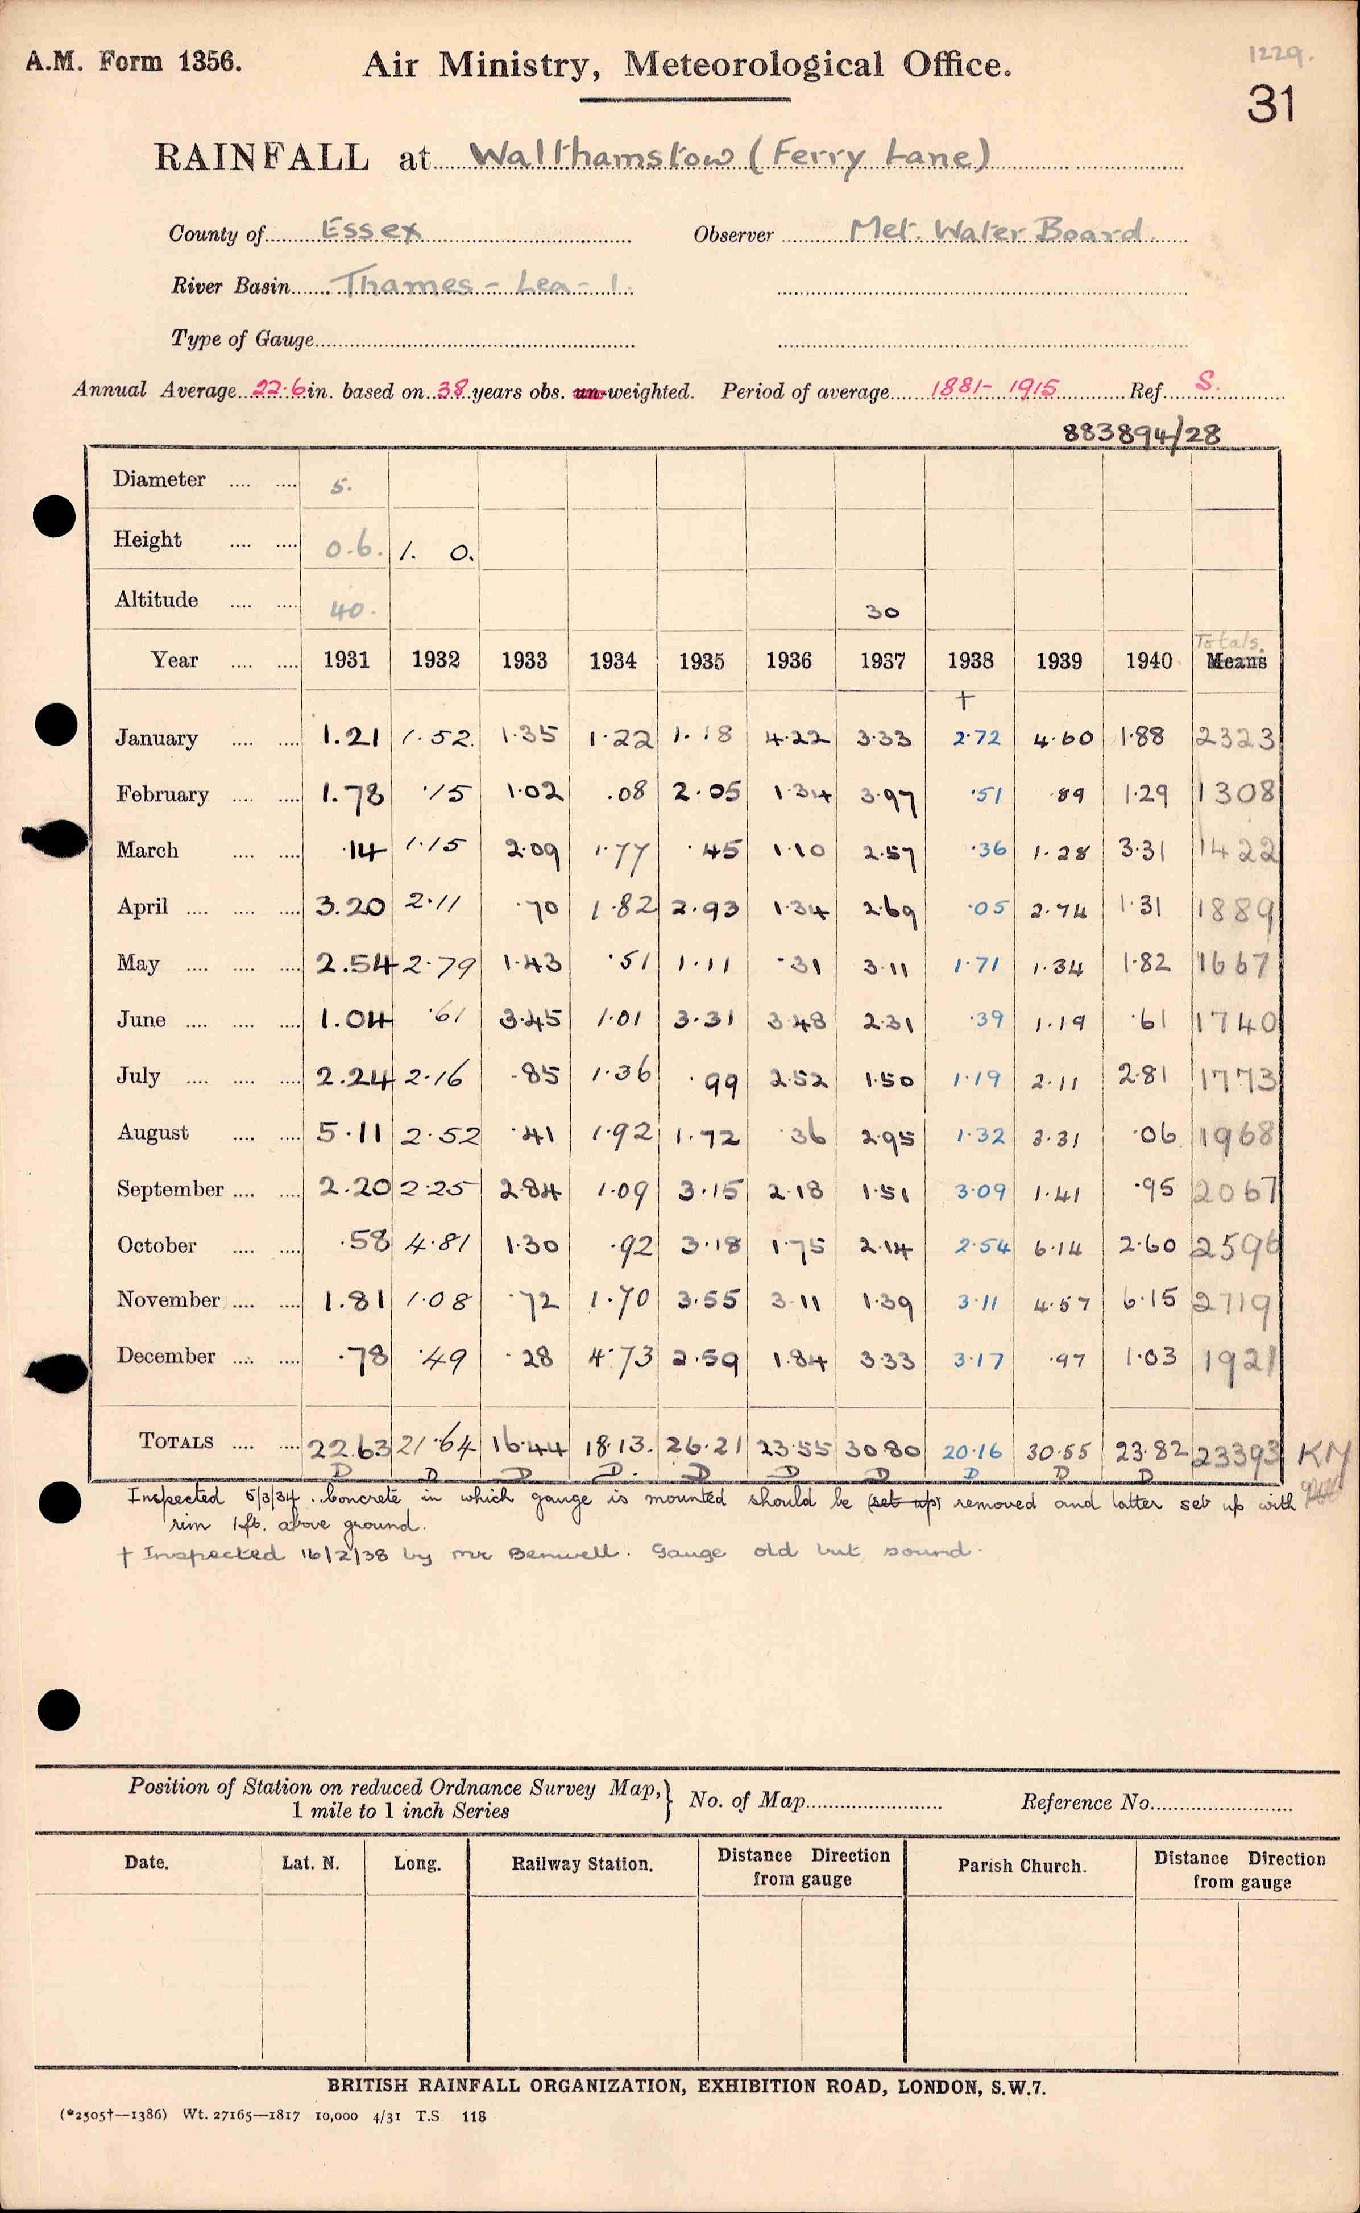 1229.
A.M. Form 1356. Air Ministry, Meteorological Office. 31
RAINFALL at Walthamstow (Ferry Lane)
County of Essex Observer Met. Water Board
River Basin Thames - Lea - 1.
Type of Gauge
Annual Average 22.6 in. based on 38 years obs. un-weighted. Period of average 1881-1915 Ref. S.
883894/28
Diameter 5.
Height 0.6. 1. 0.
Altitude 40. 30
Totals.
Year 1931 1932 1933 1934 1935 1936 1937 1938 1939 1940 Means
†
January 1.21 1.52. 1.35 1.22 1.18 4.22 3.33 2.72 4.60 1.88 2323
February 1.78 .15 1.02 .08 2.05 1.34 3.97 .51 .89 1.29 1308
March .14 1.15 2.09 1.77 .45 1.10 2.57 .36 1.28 3.31 1422
April 3.20 2.11 .70 1.82 2.93 1.34 2.69 .05 2.74 1.31 1889
May 2.54 2.79 1.43 .51 1.11 .31 3.11 1.71 1.34 1.82 1667
June 1.04 .61 3.45 1.01 3.31 3.48 2.31 .39 1.19 .61 1740
July 2.24 2.16 .85 1.36 .99 2.52 1.50 1.19 2.11 2.81 1773
August 5.11 2.52 .41 1.92 1.72 .36 2.95 1.32 3.31 .06 1968
September 2.20 2.25 2.84 1.09 3.15 2.18 1.51 3.09 1.41 .95 2067
October .58 4.81 1.30 .92 3.18 1.75 2.14 2.54 6.14 2.60 2596
November 1.81 1.08 .72 1.70 3.55 3.11 1.39 3.11 4.57 6.15 2719
December .78 .49 .28 4.73 2.59 1.84 3.33 3.17 .97 1.03 1921
TOTALS 22.63 21.64 16.44 18.13. 26.21 23.55 30.80 20.16 30.55 23.82 23393 KM
D D D D. D D D D D D
Inspected 5/3/34. Concrete in which gauge is mounted should be (set up) removed and latter set up with
rim 1ft. above ground.
† Inspected 16/2/38 by Mr Benwell. Gauge old but sound.
Position of Station on reduced Ordnance Survey Map, } No. of Map Reference No.
1 mile to 1 inch Series
Date. Lat. N. Long. Railway Station. Distance Direction from gauge Parish Church. Distance Direction from gauge
BRITISH RAINFALL ORGANIZATION, EXHIBITION ROAD, LONDON, S.W.7.
(*2505†—1386) Wt. 27165—1817 10,000 4/31 T.S 118